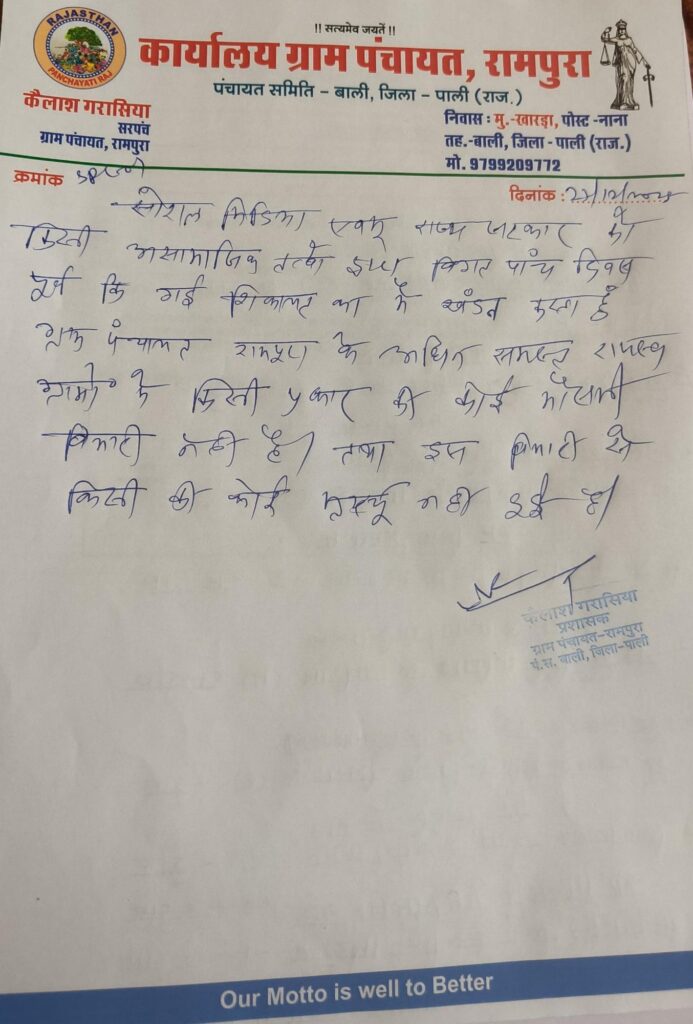 !! सत्यमेव जयते !!
RAJASTHAN
PANCHAYATI RAJ
कार्यालय ग्राम पंचायत, रामपुरा
पंचायत समिति - बाली, जिला - पाली (राज.)
कैलाश गरासिया
सरपंच
ग्राम पंचायत, रामपुरा
निवास : मु.-खारड़ा, पोस्ट -नाना
तह.-बाली, जिला - पाली (राज.)
मो. 9799209772
क्रमांक
दिनांक :
सोशल मिडिया एवम् राज्य सरकार को
किसी असामाजिक तत्वो द्वारा विगत पांच दिवस
पूर्व कि गई शिकायत का मैं खंडन करता हूँ
ग्राम पंचायत रामपुरा के अधिन समस्त राजस्व
ग्रामो मे किसी प्रकार की कोई मौसामी
बिमारी नही है। तथा इस बिमारी से
किसी की कोई मृत्यू नही हुई है।
कैलाश गरासिया
प्रशासक
ग्राम पंचायत-रामपुरा
पं.स. बाली, जिला-पाली
Our Motto is well to Better